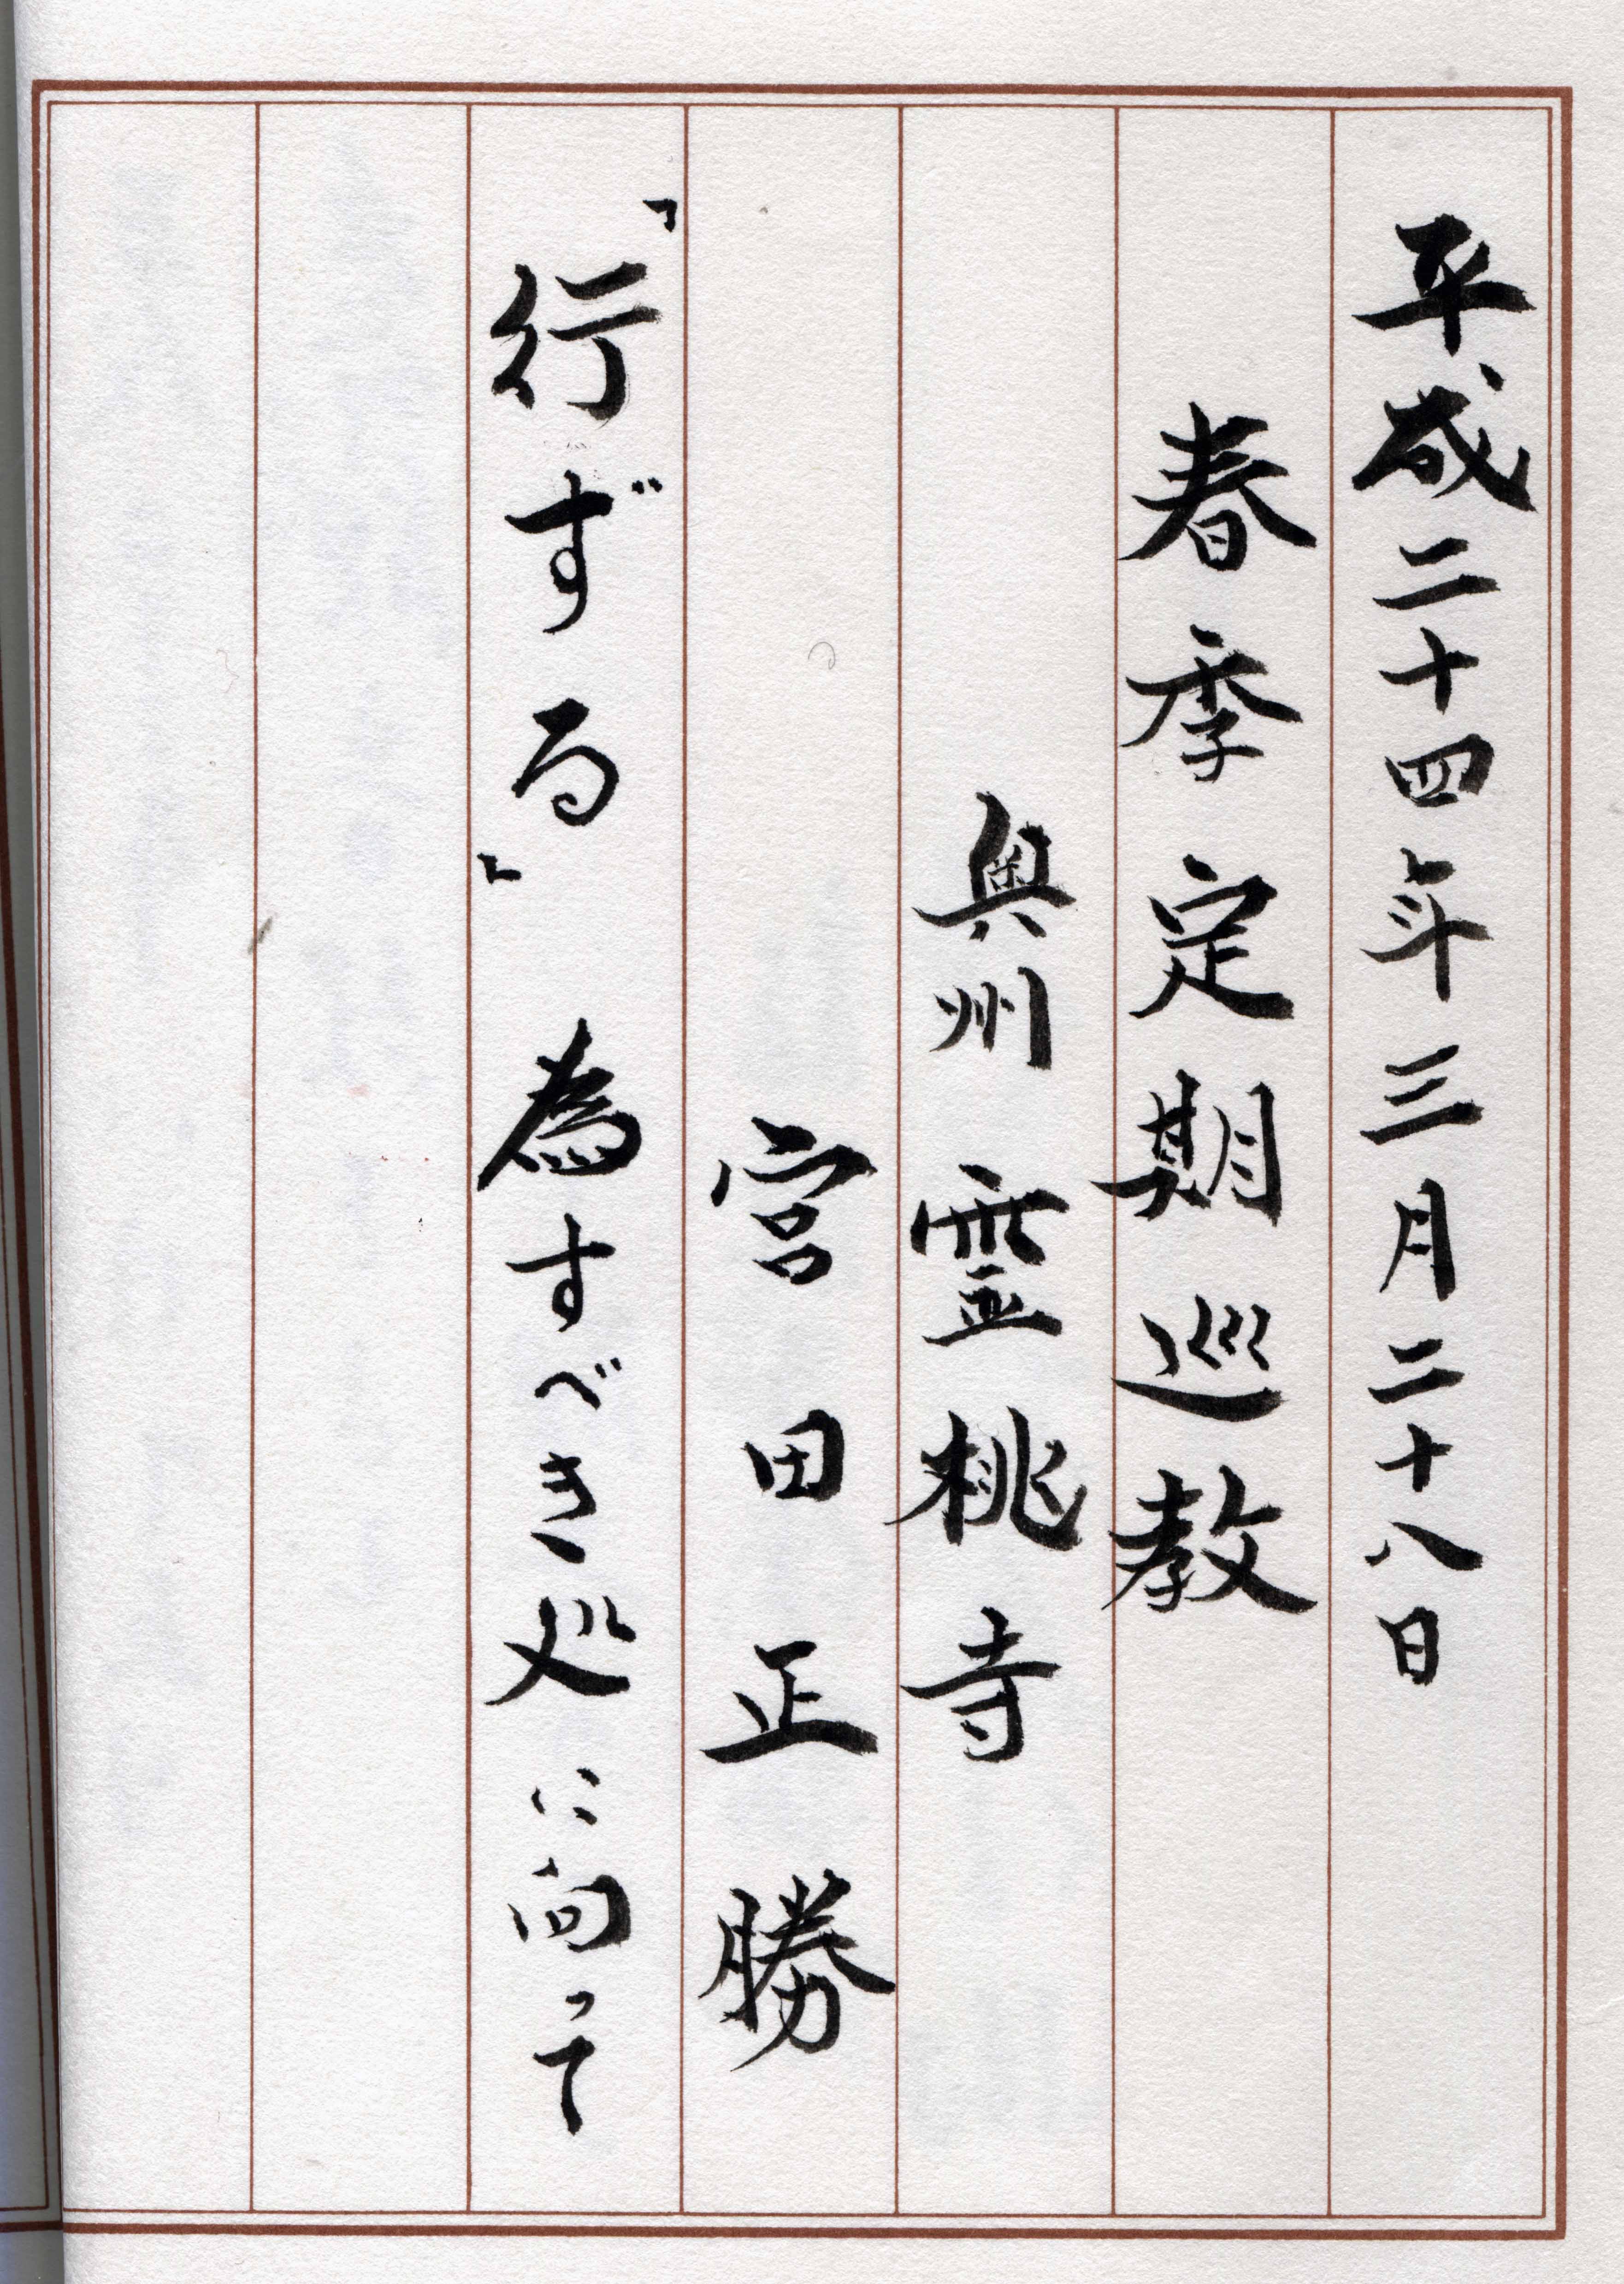 平成二十四年三月二十八日
春季定期巡教
奥州 霊桃寺
宮田正勝
「行ずる」 為すべき処に向って